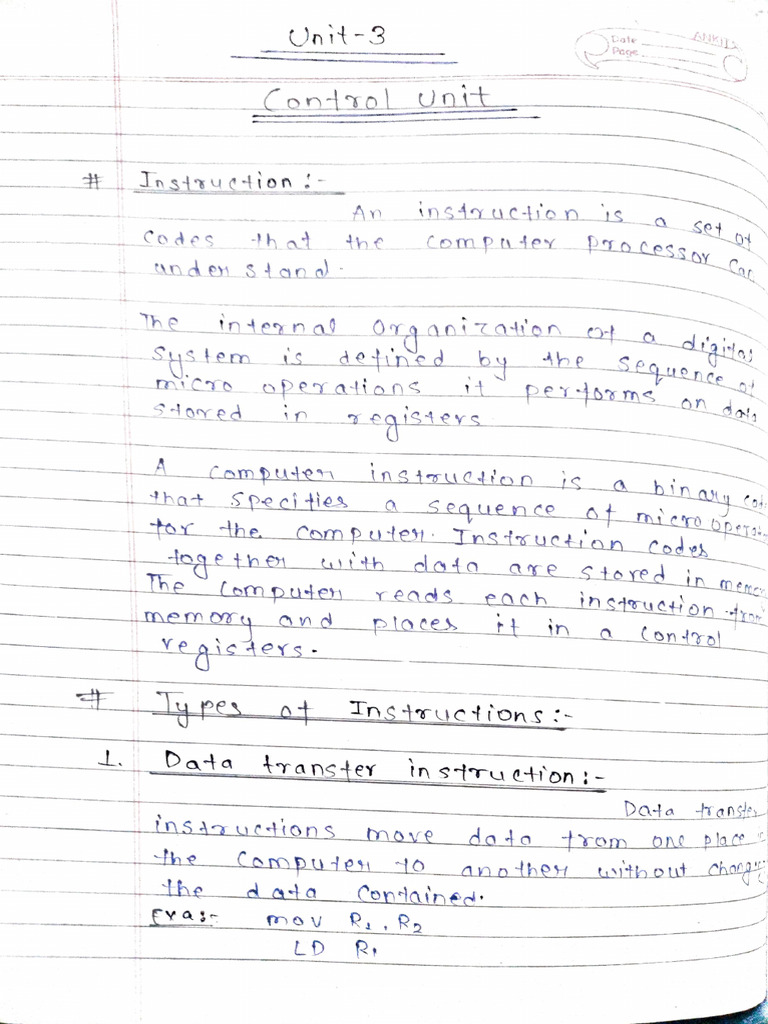 Unit-3
Date
Page
ANKIT
Control Unit
# Instruction :-
An instruction is a set of
codes that the computer processor can
understand.
The internal organization of a digital
system is defined by the sequence of
micro operations it performs on data
stored in registers
A computer instruction is a binary cod
that specifies a sequence of micro operati
for the computer. Instruction codes
together with data are stored in memor
The computer reads each instruction from
memory and places it in a control
registers.
# Types of Instructions :-
1. Data transfer instruction :-
Data transfer
instructions move data from one place
the computer to another without changi
the data contained.
mov R1, R2
LD R1